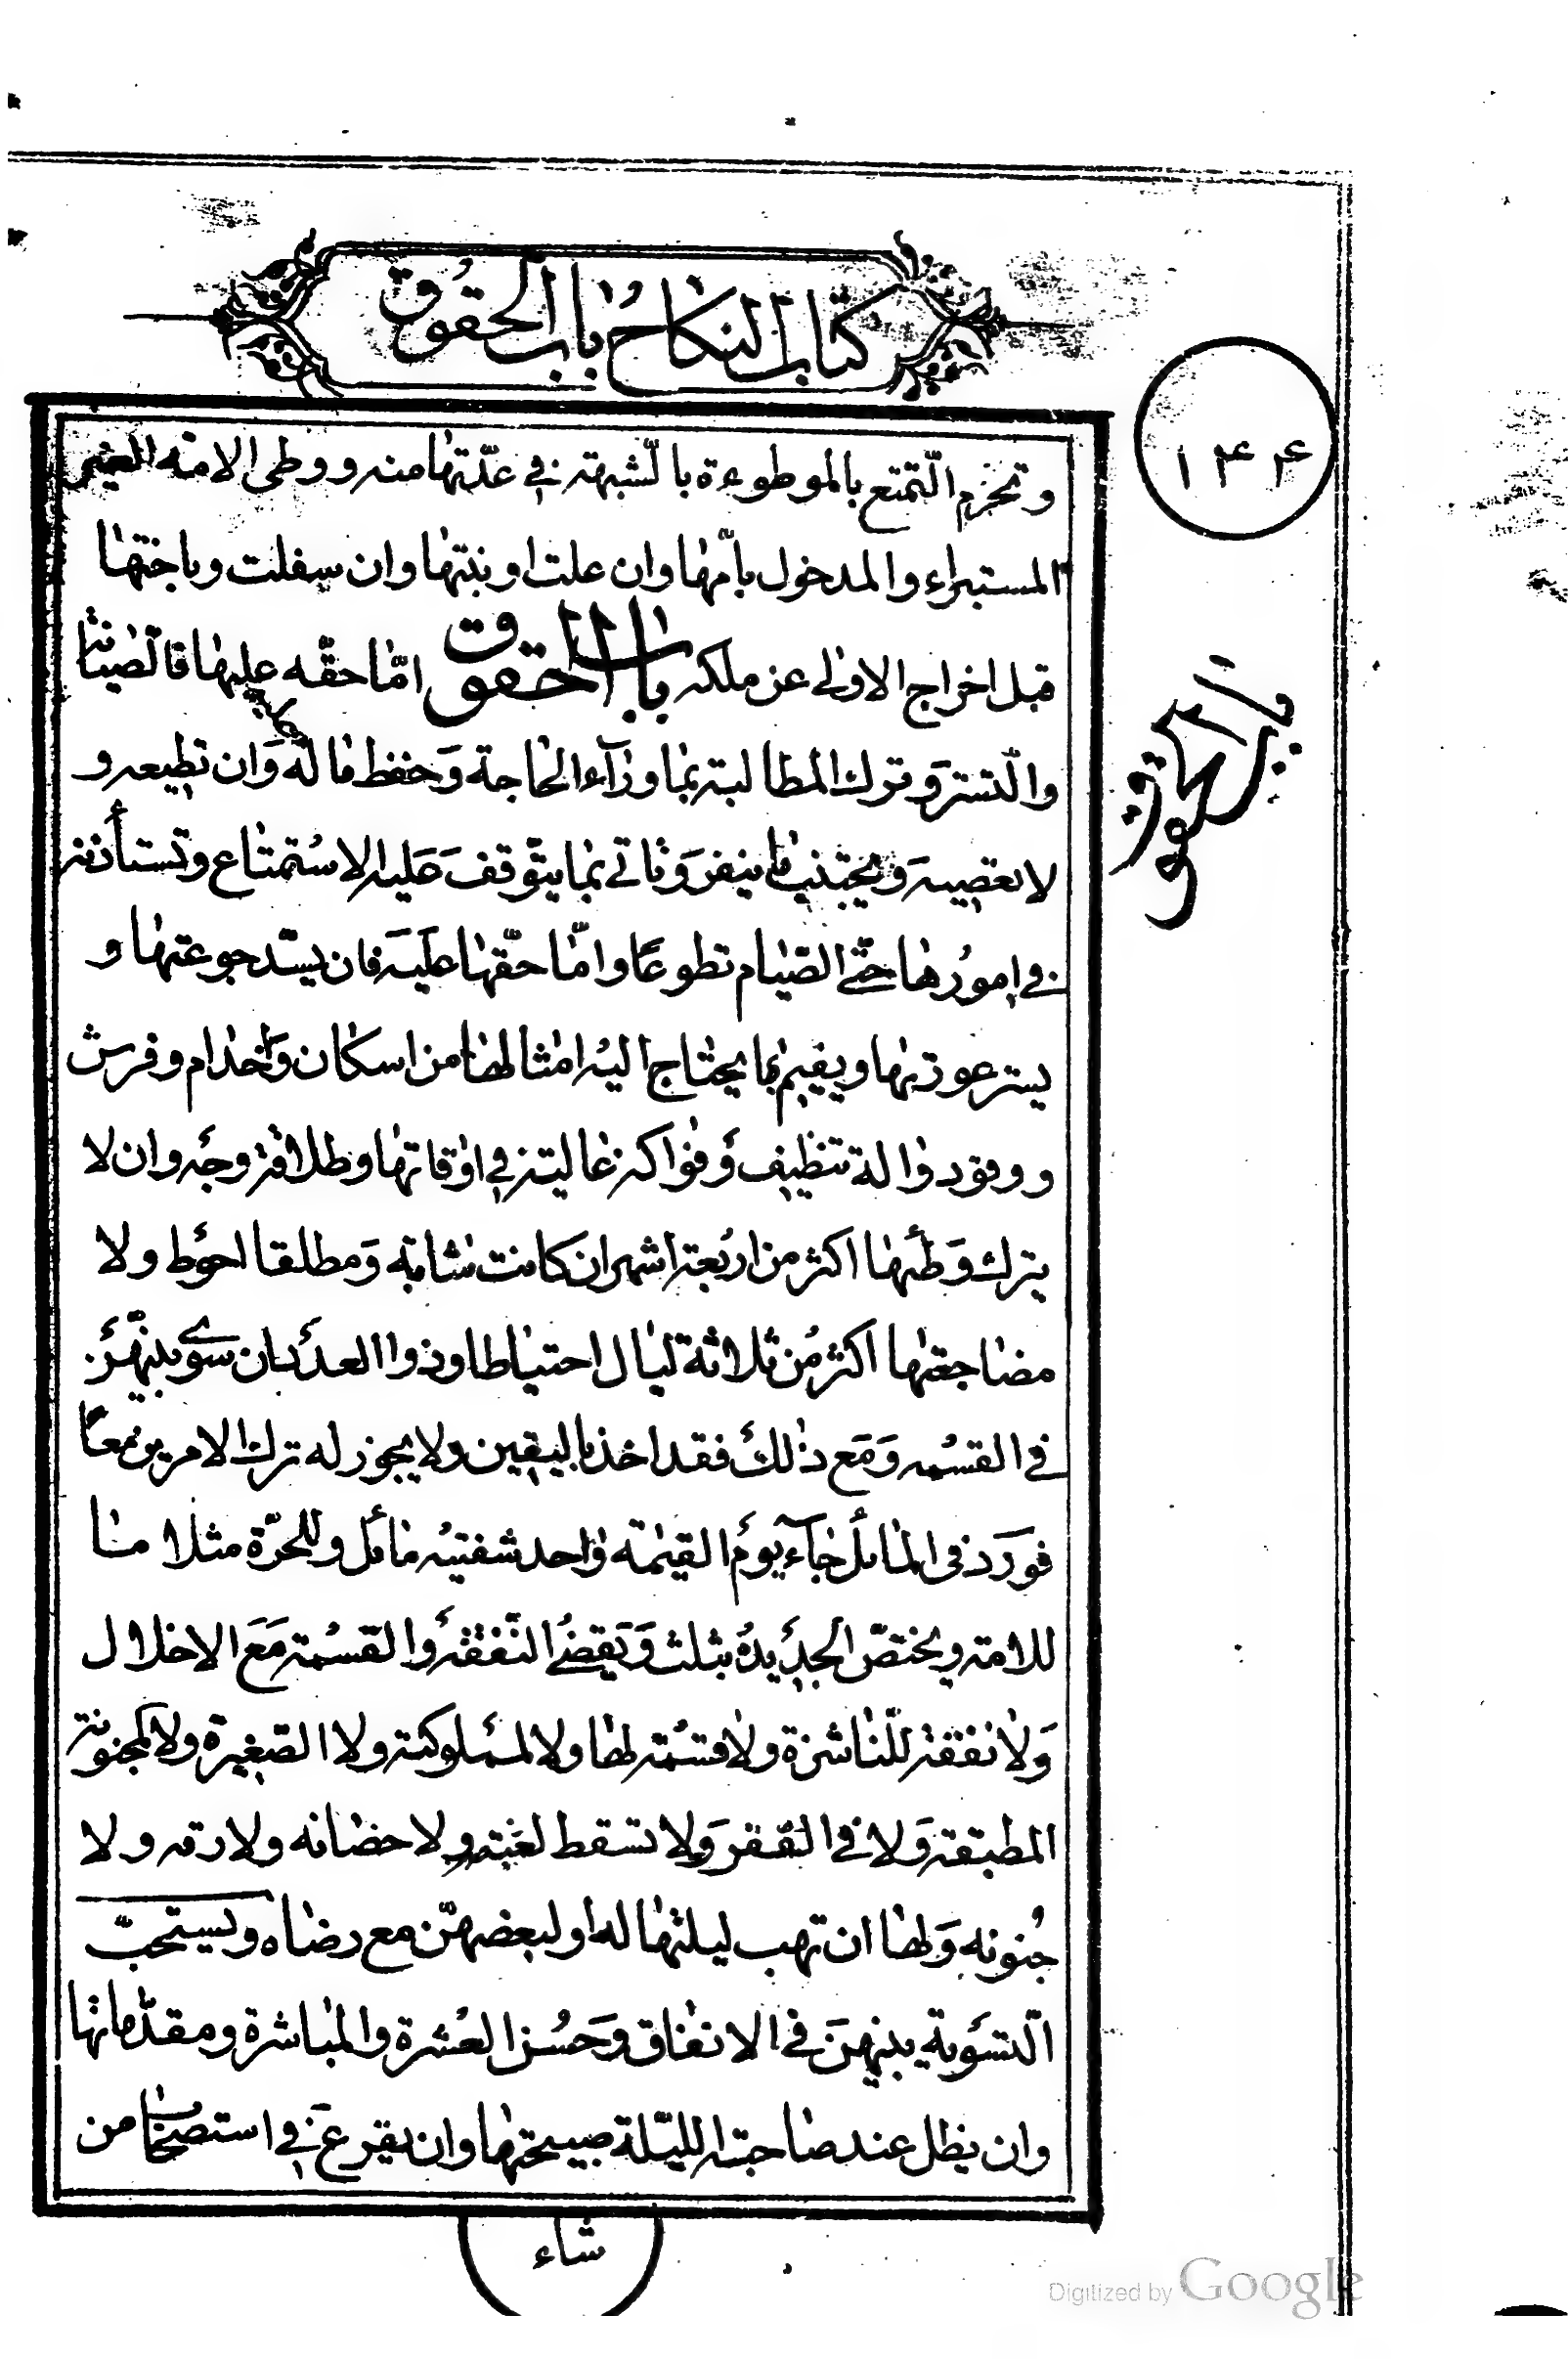 كتاب النكاح باب الحقوق
۱۴۴
وتحرم التمتع بالموطوءة بالشبهة في عدّتها منه ووطى الامة الغير
المستبراء والمدخول بامّها وان علت او بنتها وان سفلت وباختها
قبل اخراج الاولى عن ملكه باب الحقوق امّا حقّه عليها فالصّيانة
باب الحقوق
والتّستر وترك المطالبة بما وراء الحاجة وحفظ ماله وان تطيعه و
لا تعصيه وتجتنب ما ينفر وتاتي بما يتوقف عليه الاستمتاع وتستأذنه
في امورها حتّى الصّيام تطوعًا وامّا حقّها عليه فان يسدّ جوعتها و
يستر عورتها ويقيم بما يحتاج اليه امثالها من اسكان واخدام وفرش
ووقود والة تنظيف وفواكه غالبة في اوقاتها وطلاقة وجه وان لا
يترك وطأها اكثر من اربعة اشهر ان كانت شابة ومطلقا احوط ولا
مضاجعتها اكثر من ثلاثة ليال احتياطا وذوا العدد ان سوى بينهنّ
في القسمه ومع ذلك فقد اخذ باليقين ولا يجوز له ترك الامرين معًا
فورد في المائل جاء يوم القيمة واحد شفتيه مائل وللحرّة مثلا ما
للامة ويختصّ الجديدة بثلث ويقضى النّفقة والقسمة مع الاخلال
ولا نفقة للنّاشزة ولا قسمة لها ولا لمملوكة ولا الصّغيرة ولا المجنونة
المطبقة ولا في السّفر ولا تسقط لغيبته ولا حضانه ولا رقه ولا
جنونه ولها ان تهب ليلتها له او لبعضهنّ مع رضاه ويستحبّ
التّسوية بينهن في الانفاق وحسن العشرة والمباشرة ومقدّماتها
وان يظل عند صاحبة الليلة صبيحتها وان يقرع في استصحاب من
شاء
Digitized by Google